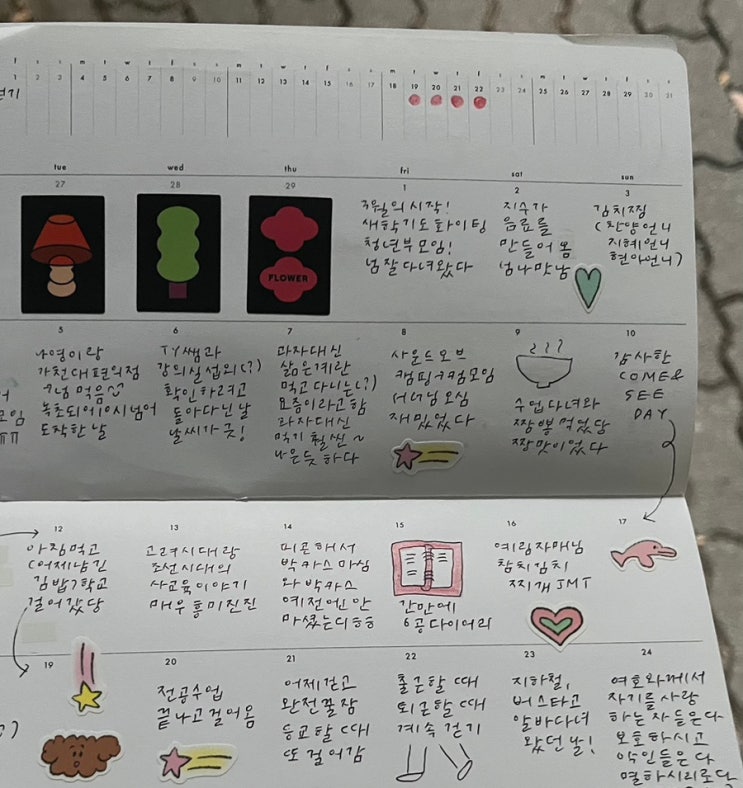 f s s m t w t f s s m t w t f s s m t w t f s s m t w t f s s
1 2 3 4 5 6 7 8 9 10 11 12 13 14 15 16 17 18 19 20 21 22 23 24 25 26 27 28 29 30 31
걷기
tue wed thu fri sat sun
27 28 29 1 2 3
FLOWER
3월의 시작!
새학기도 화이팅
청년부모임!
넘 잘 다녀왔다
지수가
음료를
만들어 옴
넘나 맛남
김치찜
(찬양언니
지혜언니
현아언니)
5 6 7 8 9 10
나영이랑
가천대 편의점
먹음
녹초되어 10시 넘어
도착한 날
TY쌤과
강의실 섭외(?)
확인하려고
돌아다닌 날
날씨가 굿!
과자대신
삶은계란
먹고 다니는(?)
요즘이라고 함
과자대신
먹기 훨씬~
나은듯 하다
사운드오브
컴잉→컴모임
오심
재밌었다
수업 다녀와
짬뽕 먹었당
짱 맛이었다
감사한
COME&
SEE
DAY
모임
ㅠㅠ
12 13 14 15 16 17
아침먹고
(어제남긴
김밥) 학교
걸어갔당
고려시대랑
조선시대의
사교육이야기
매우 흥미진진
피곤해서
박카스 마심
와 박카스
예전엔 안
마셨는디ㅎㅎ
간만에
6공 다이어리
예림자매님
참치김치
찌개 JMT
19 20 21 22 23 24
전공수업
끝나고 걸어옴
어제 걷고
완전 꿀잠
등교할 때
또 걸어감
출근할 때
퇴근할 때
계속 걷기
지하철,
버스타고
알바다녀
왔던 날!
여호와께서
자기를 사랑
하는 자들은 다
보호하시고
악인들은 다
멸하시리로다